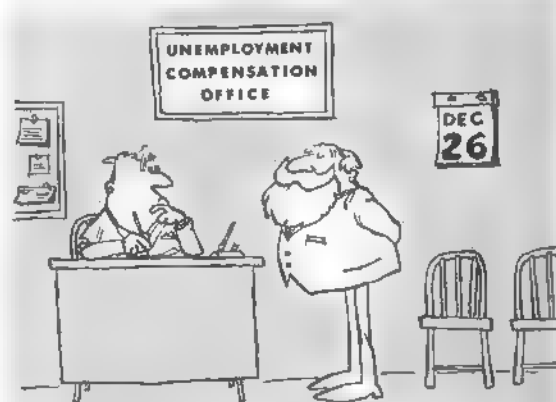 UNEMPLOYMENT
COMPENSATION
OFFICE
DEC
26